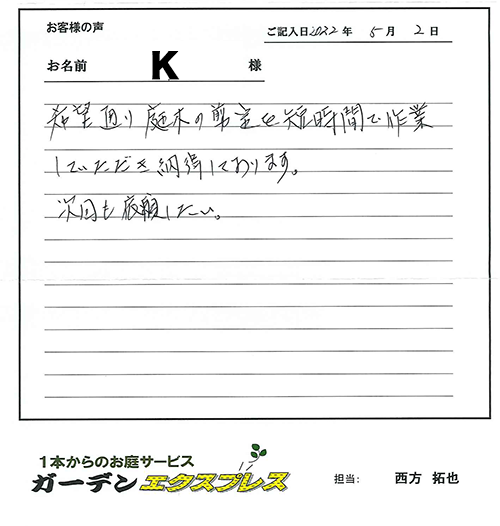 お客様の声
ご記入日2022年 5月 2日
お名前 K 様
希望通り庭木の剪定を短時間で作業
していただき納得しております。
次回も依頼したい。
1本からのお庭サービス
ガーデンエクスプレス
担当: 西方 拓也